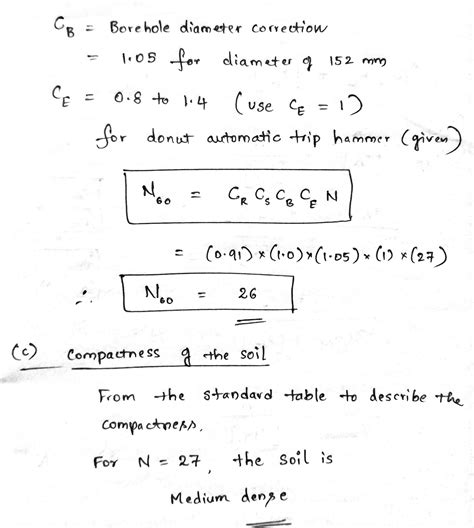 C_B = Borehole diameter correction
= 1.05 for diameter of 152 mm
C_E = 0.8 to 1.4 (use C_E = 1)
for donut automatic trip hammer (given)
N_60 = C_R C_S C_B C_E N
= (0.91) × (1.0) × (1.05) × (1) × (27)
∴ N_60 = 26
(c) Compactness of the soil
From the standard table to describe the
compactness.
For N = 27, the soil is
Medium dense